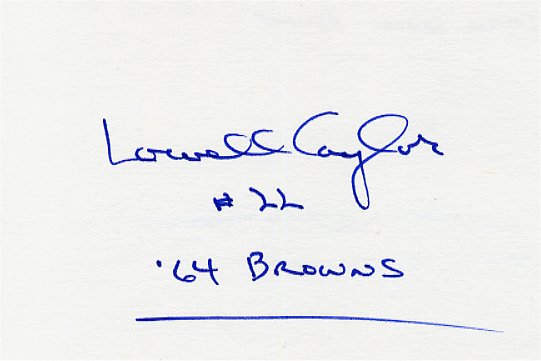 Lowell Caylor
# 22
'64 BROWNS